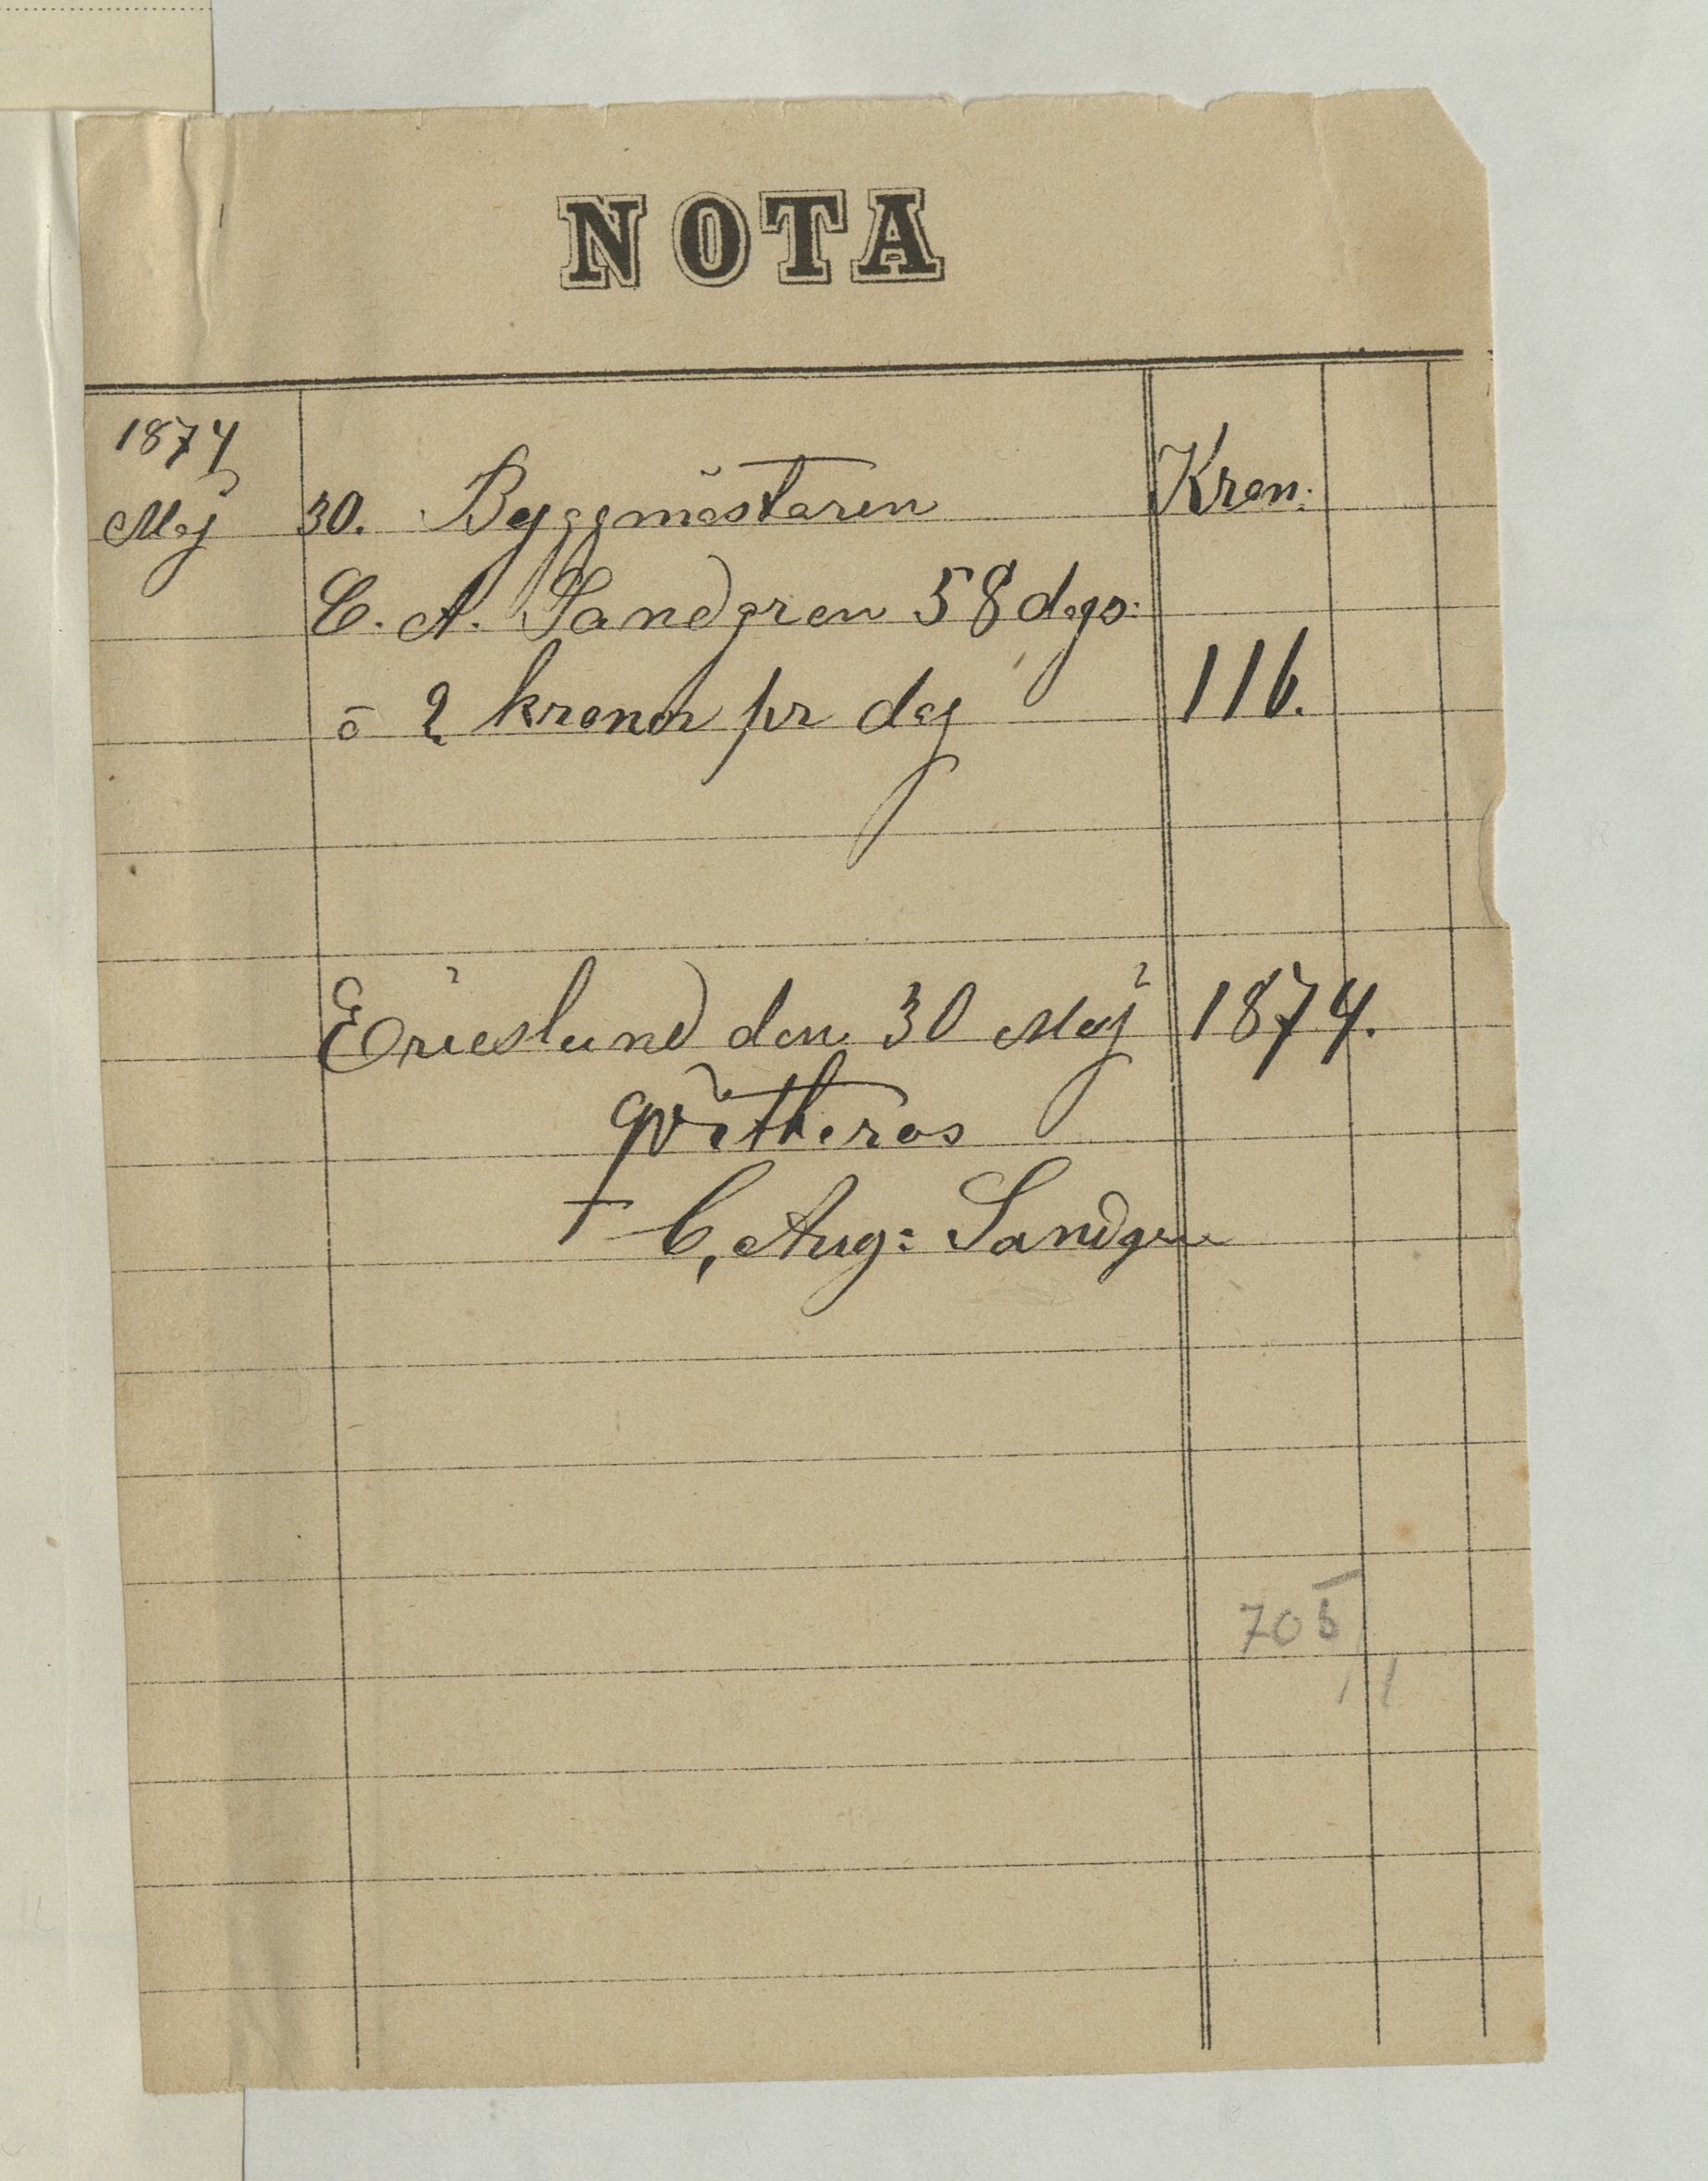 NOTA
1874
Maj 30. Byggmästaren Kron:
C. A. Sandgren 58 dags:
à 2 kronor pr dag 116.
Ericslund den 30 Maj 1874.
qvitteras
C, Aug: Sandgren
705